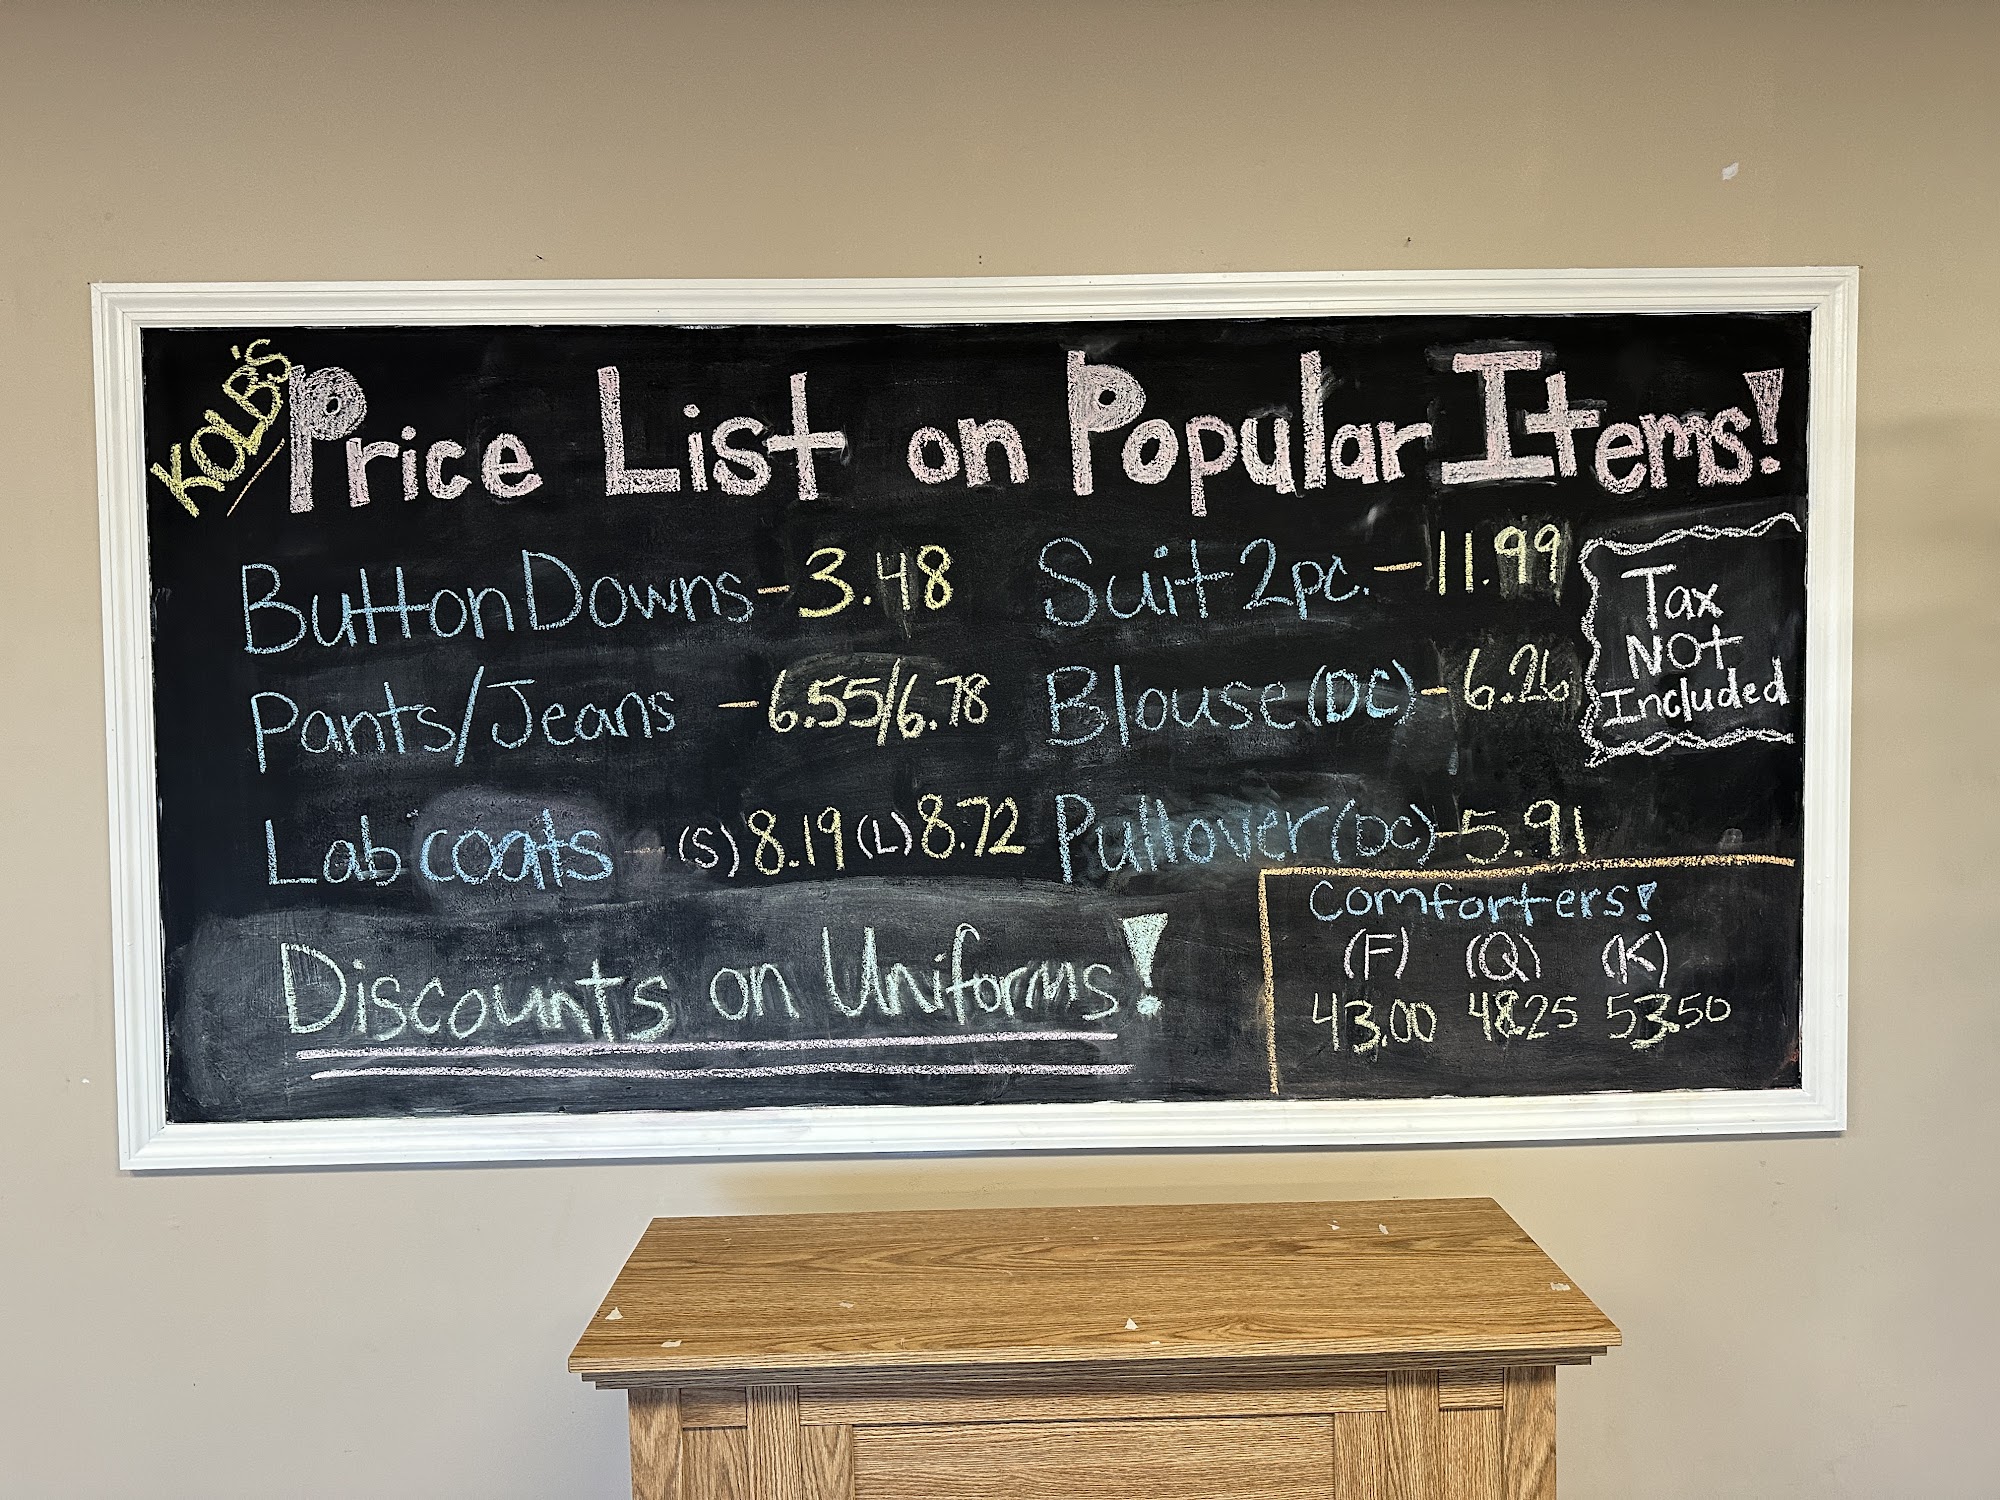 KOLB'S
Price List on Popular Items!
Button Downs - 3.48
Pants/Jeans - 6.55/6.78
Lab coats - (S) 8.19 (L) 8.72
Suit 2pc. - 11.99
Blouse (DC) - 6.26
Pullover (DC) - 5.91
Tax
NOt
Included
Discounts on Uniforms!
Comforters!
(F) (Q) (K)
43.00 48.25 53.50